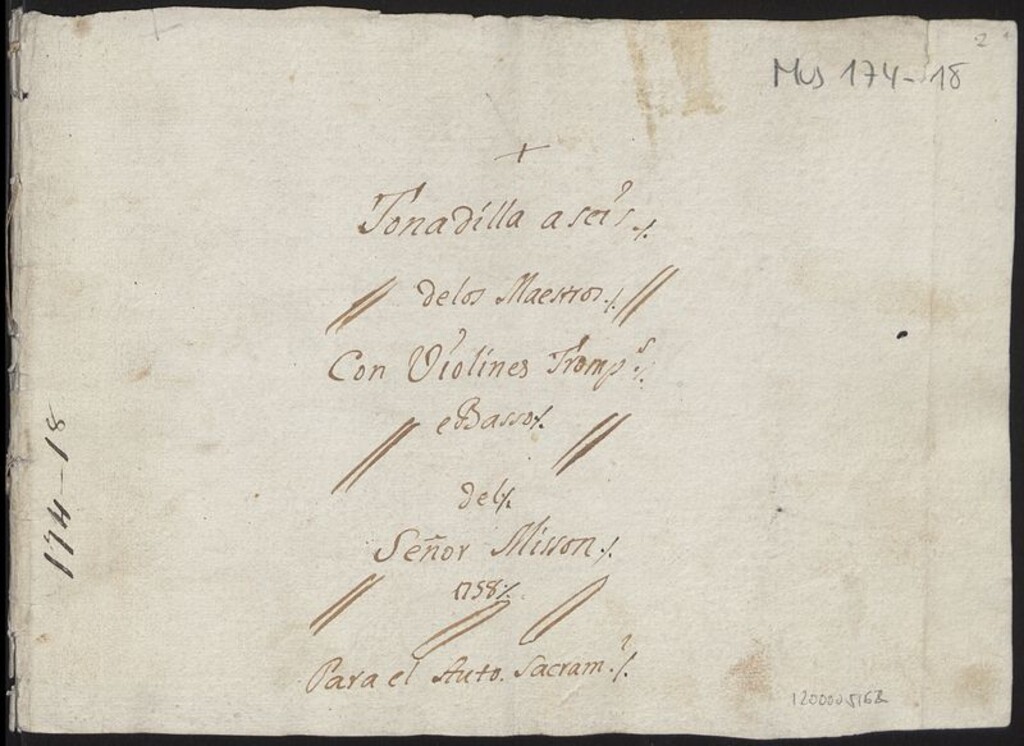 2
Mus 174-18
+
Tonadilla a seis.
de los Maestros.
Con Violines Tromp.s
e Basso
del
Señor Misson.
1758
Para el Auto. Sacram.l
174-18
1200005162